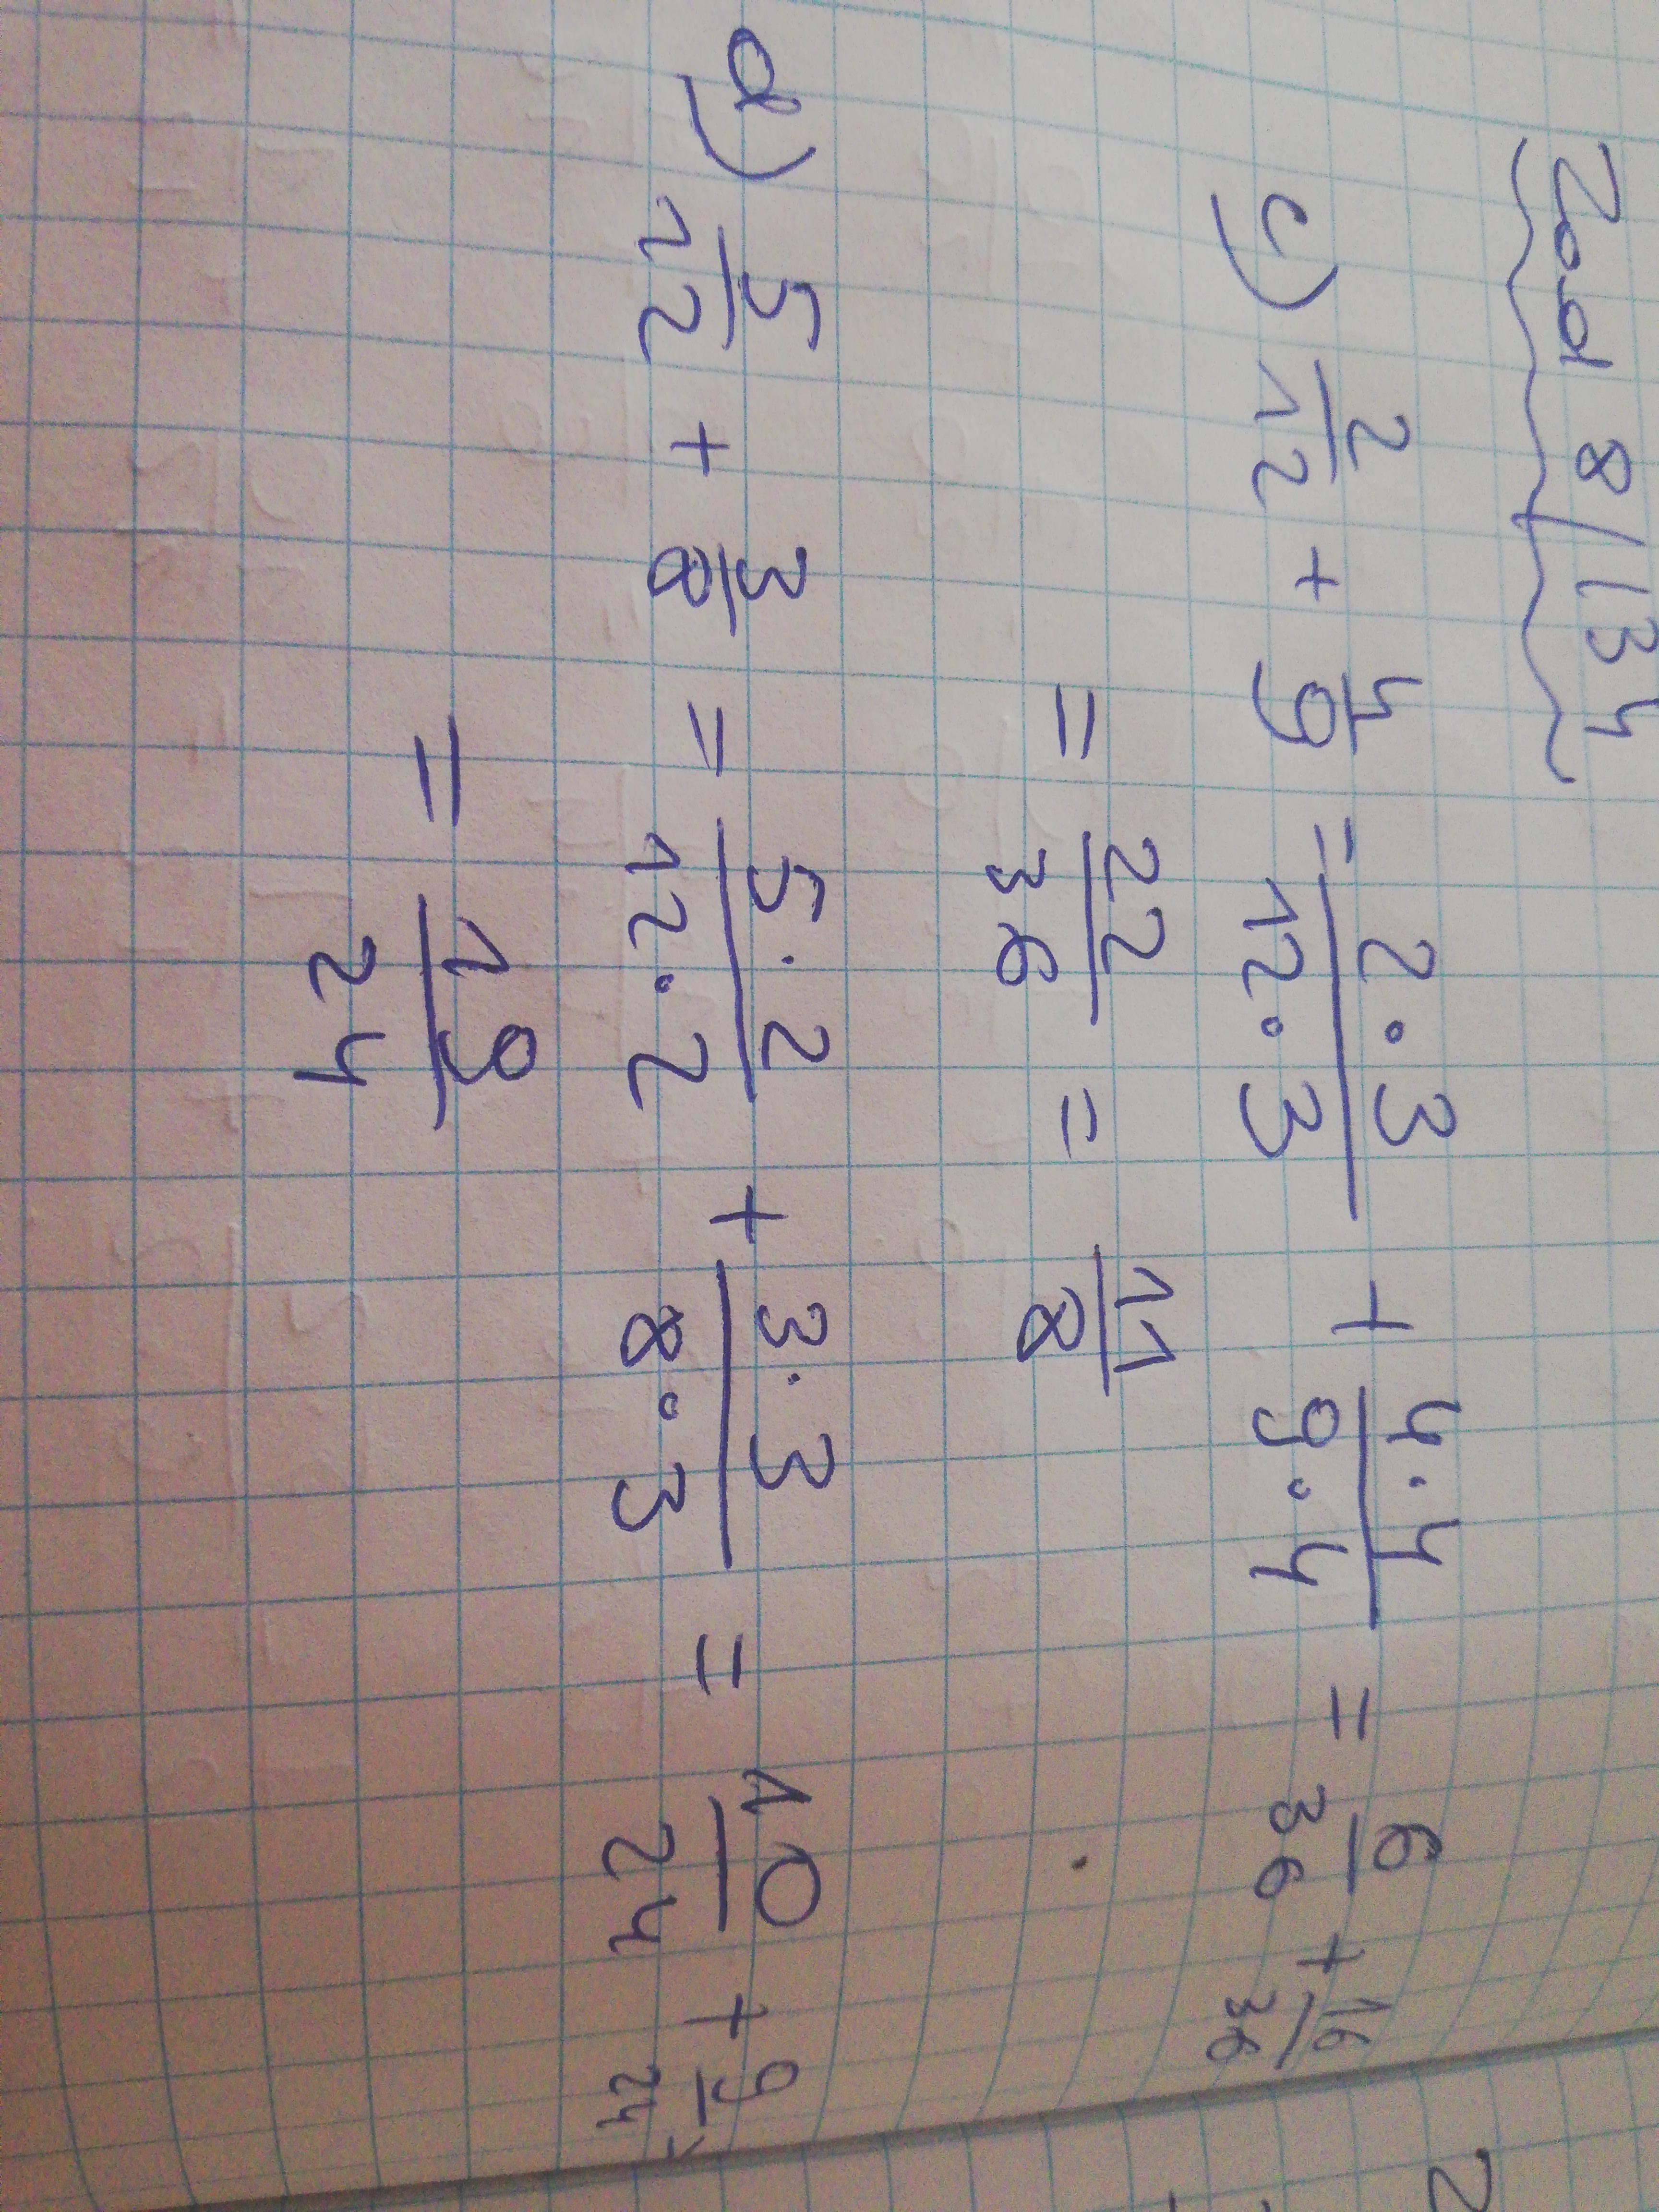 Zad 8/134
c) 2/12 + 4/9 = 2·3/12·3 + 4·4/9·4 = 6/36 + 16/36
= 22/36 = 11/8
d) 5/12 + 3/8 = 5·2/12·2 + 3·3/8·3 = 10/24 + 9/24
= 19/24
2